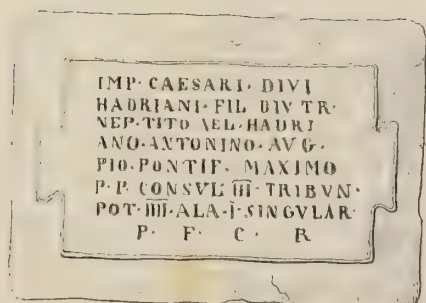 IMP· CAESARI· DIVI
HADRIANI· FIL DIV TR·
NEP·TITO AEL·HADRI
ANO·ANTONINO·AVG·
PIO·PONTIF· MAXIMO
P·P· CONSVL· I̅I̅I̅I̅·TRIBVN·
POT·I̅I̅I̅I̅·ALA·I̅·SINGVLAR·
P· F· C· R